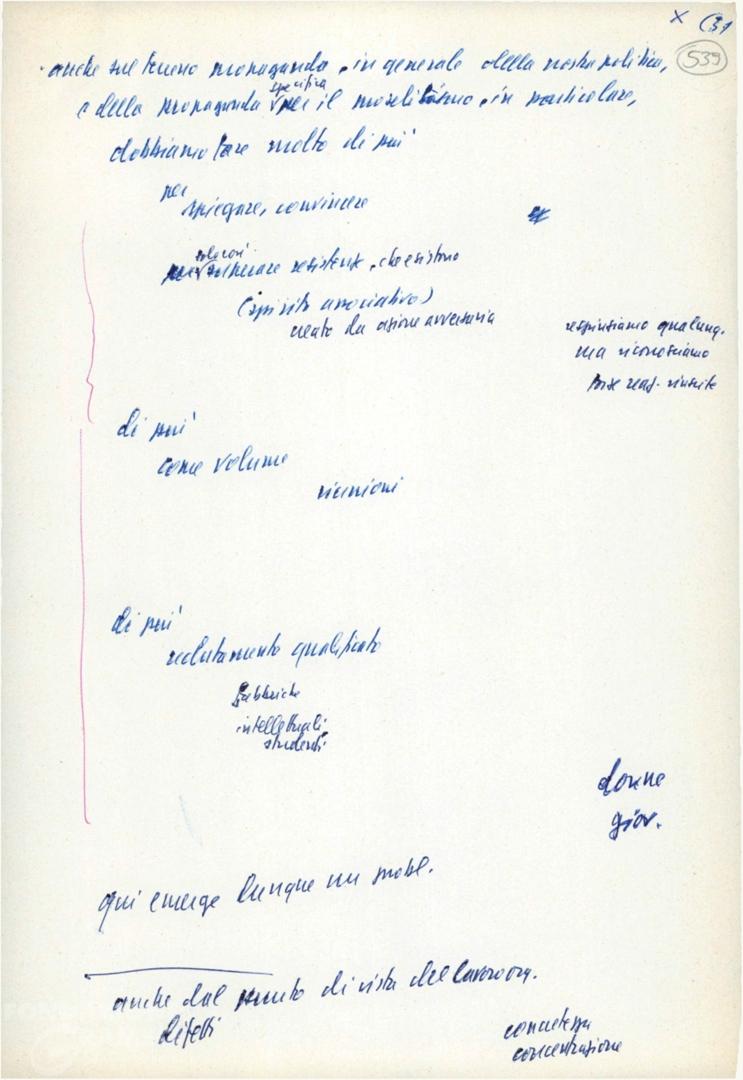 x (31
539
anche sul terreno propaganda, in generale della nostra politica,
e della propaganda specifica per il proselitismo, in particolare,
dobbiamo fare molto di più
per
spiegare, convincere
superare resistenze, che esistono
(spirito associativo)
creato da azione avversaria
respingiamo qualunq.
ma riconosciamo
di più
come volume
riunioni
di più
reclutamento qualificato
fabbriche
intellettuali
studenti
donne
giov.
qui emerge dunque un probl.
anche dal punto di vista del lavoro org.
difetti
concretezza
concentrazione